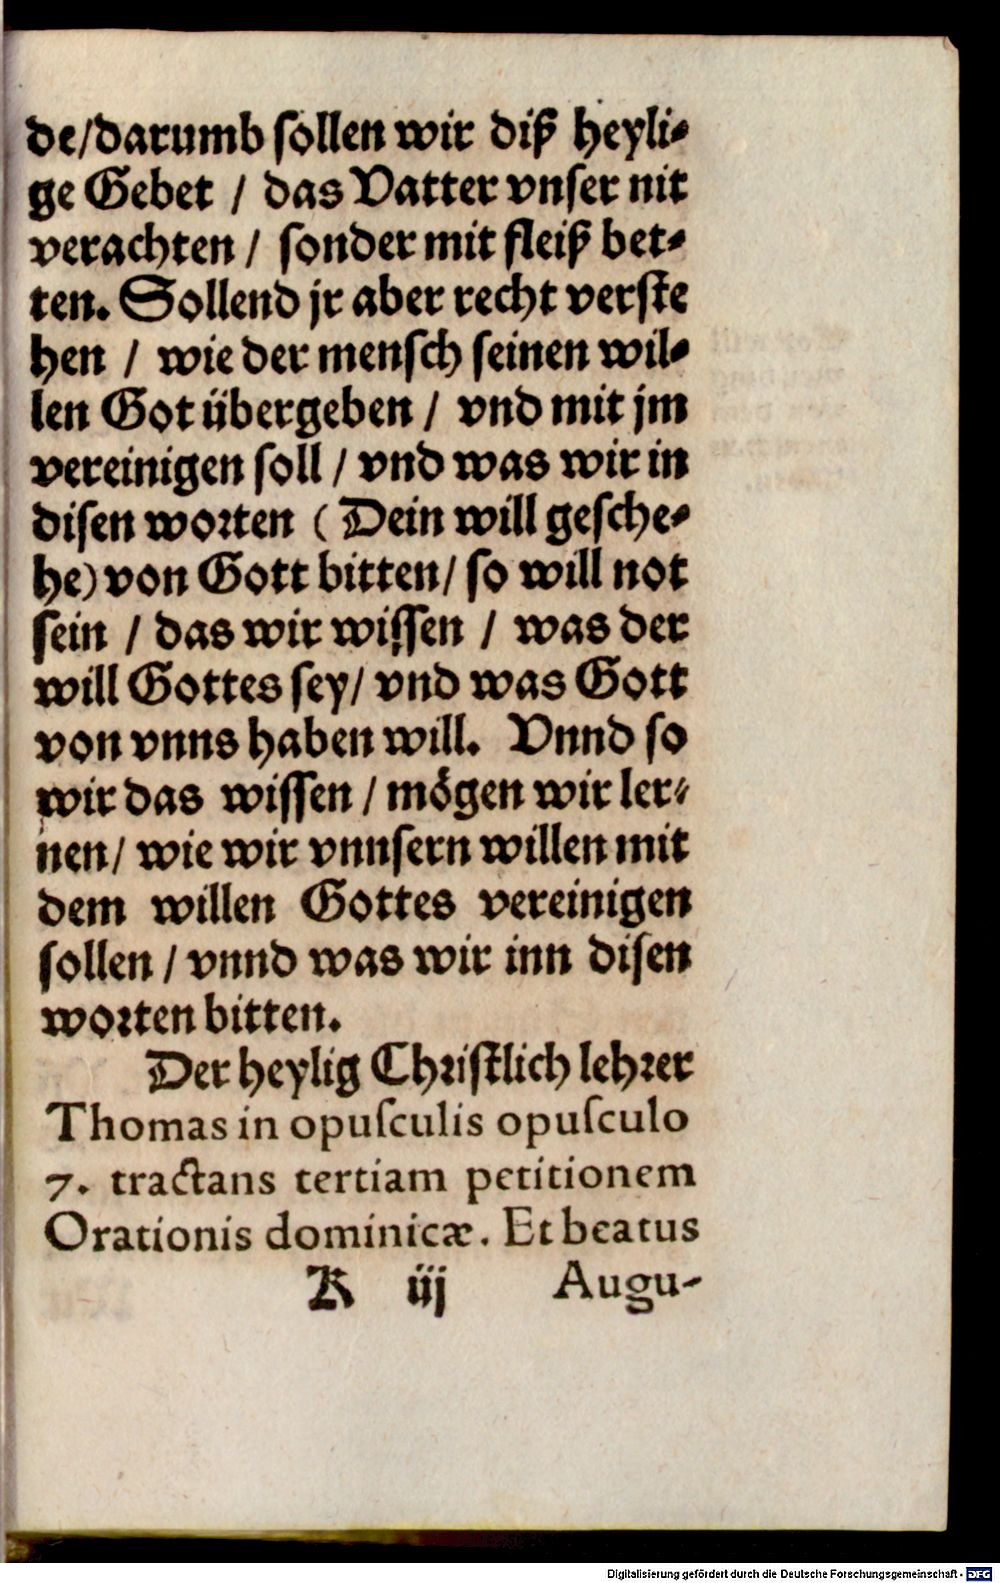 de/darumb sollen wir diß heyli-
ge Gebet / das Vatter vnser nit
verachten / sonder mit fleiß bet-
ten. Sollend jr aber recht verste
hen / wie der mensch seinen wil-
len Got übergeben / vnd mit jm
vereinigen soll / vnd was wir in
disen worten (Dein will gesche-
he) von Gott bitten/ so will not
sein / das wir wissen / was der
will Gottes sey/ vnd was Gott
von vnns haben will. Vnnd so
wir das wissen / mögen wir ler-
nen/ wie wir vnnsern willen mit
dem willen Gottes vereinigen
sollen / vnnd was wir inn disen
worten bitten.
Der heylig Christlich lehrer
Thomas in opusculis opusculo
7. tractans tertiam petitionem
Orationis dominicæ. Et beatus
K iij Augu-
Digitalisierung gefördert durch die Deutsche Forschungsgemeinschaft - DFG